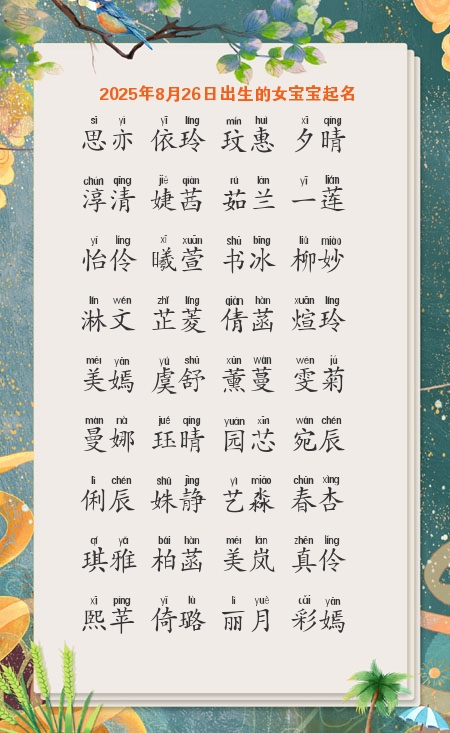 2025年8月26日出生的女宝宝起名
sī yì yī líng mín huì xī qíng
思亦 依玲 玟惠 夕晴
chún qīng jié qiàn rú lán yī lián
淳清 婕茜 茹兰 一莲
yí líng xī xuān shū bīng liǔ miào
怡伶 曦萱 书冰 柳妙
lín wén zhǐ líng qiàn hàn xuān líng
淋文 芷菱 倩菡 煊玲
měi yān yú shū xūn wàn wén jú
美嫣 虞舒 薰蔓 雯菊
màn nà jué qíng yuán xīn wǎn chén
曼娜 珏晴 园芯 宛辰
lì chén shū jìng yì miǎo chūn xìng
俐辰 姝静 艺淼 春杏
qí yǎ bǎi hàn měi lán zhēn líng
琪雅 柏菡 美岚 真伶
xī píng yǐ lù lì yuè cǎi yān
熙苹 倚璐 丽月 彩嫣